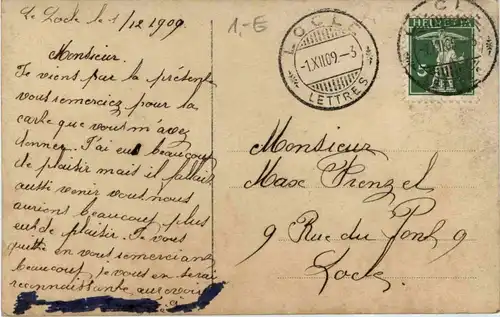 Le Locle le 1/12 1909.
Monsieur.
Je viens par la présente
vous remerciez pour la
carte que vous m'avez
donner. J'ai eu beaucoup
de plaisir mais il fallait
aussi venir vous nous
aurions beaucoup plus
eut de plaisir. Je vous
quitte en vous remerciant
beaucoup je vous en serai
reconnaissante au revoir
1.-E
LOCLE
-1.XII.09.-3
LETTRES
HELVETIA
5
Monsieur
Max Frenzel
9 Rue du Pont 9
Locle.